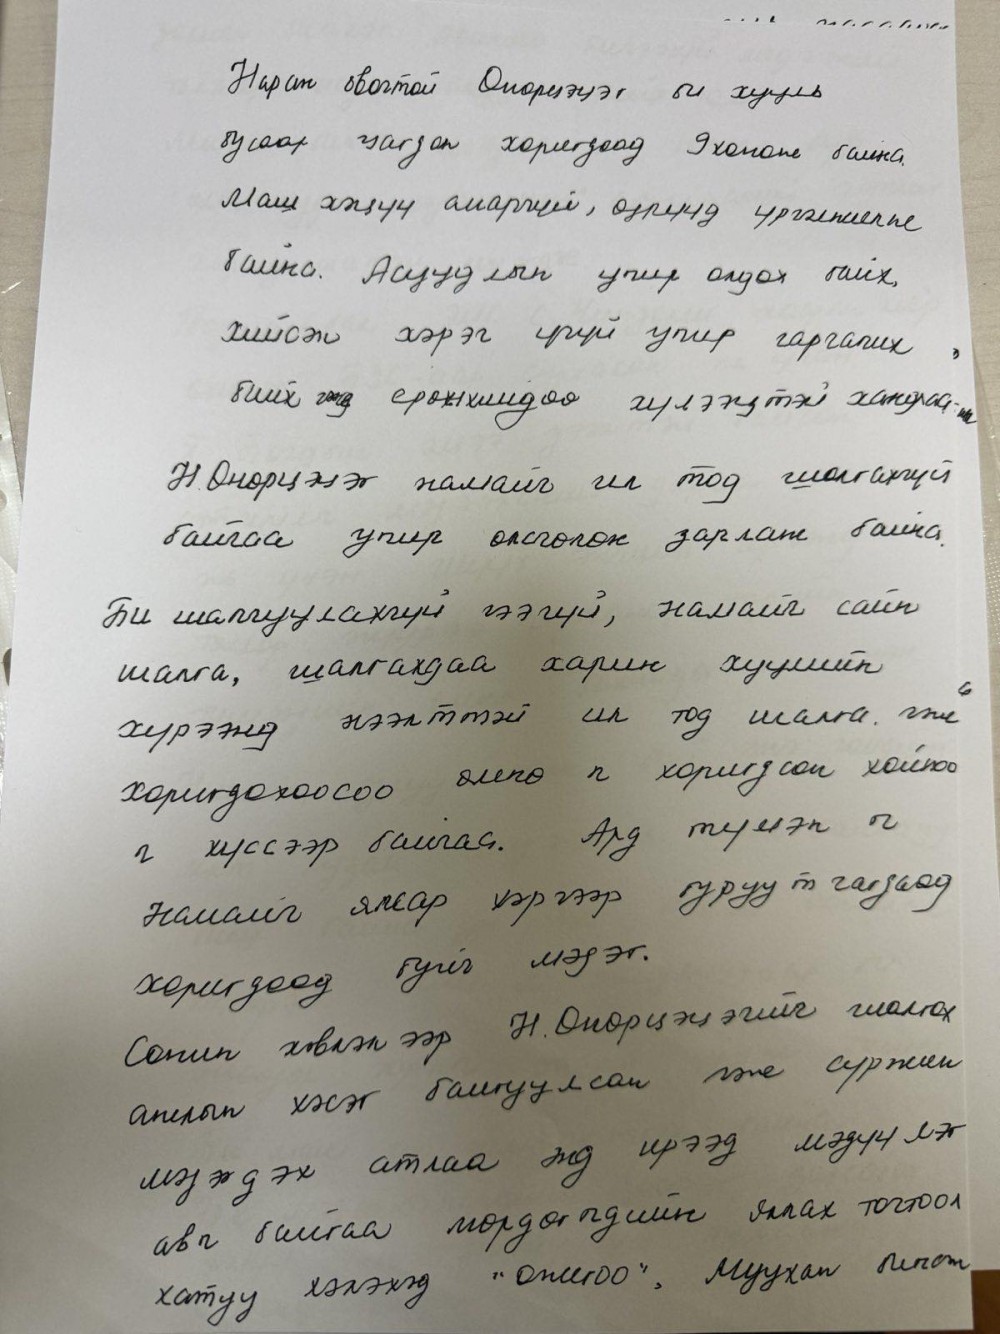 Наран овогтой Онорцэцэг би хууль
бусаар цагдан хоригдоод 9 хоноже байна.
Маш хэцүү амаргүй, өдрүүд үргэлжилже
байна. Асуудлын учир олдох байх,
хийсэн хэрэг үгүй учир гаргачих
биих гэж ерөнхийдөө хүлээцтэй хандлаа.
Н. Онорцэцэг намайг ил тод шалгахгүй
байгаа учир өлсгөлөн зарлаж байна.
Би шалгуулахгүй гээгүй, намайг сайн
шалга, шалгахдаа харин хуулийн
хүрээнд нээлттэй ил тод шалга. гэже
хоригдохоосоо өмнө ч хоригдсон хойноо
ч хүссээр байгаа. Ард түмэн ч
Намайг ялсар хэргээр буруутгагдаад
хоригдоод буйг мэдэг.
Сонин хэвлэлээр Н. Онорцэцэгийг шалгах
ажлын хэсэг байгуулсан гэже суржин
мэдэгдэх атлаа энд ирээд мэдүүлэг
авч байгаа мөрдөгчдийн яллах тогтоол
хатуу хэлэхэд "онигоо". Муухан бичсэн